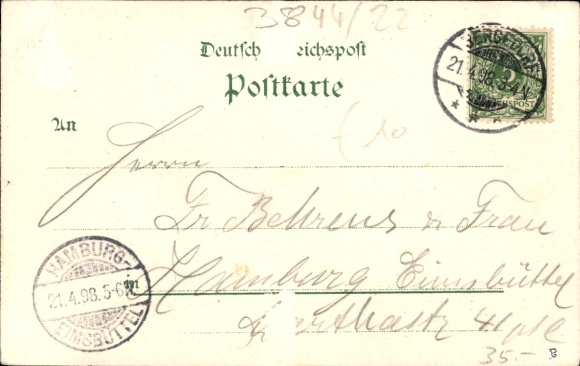 3844/22
Deutsch eichspost
Postkarte
BERGEDORF
21.4.98.3-4N
An
£10
Herrn
Fr Behrens & Frau
HAMBURG-
21.4.98.5-6N
EIMSBÜTTEL
in
Hamburg Eimsbüttel
35.-
B